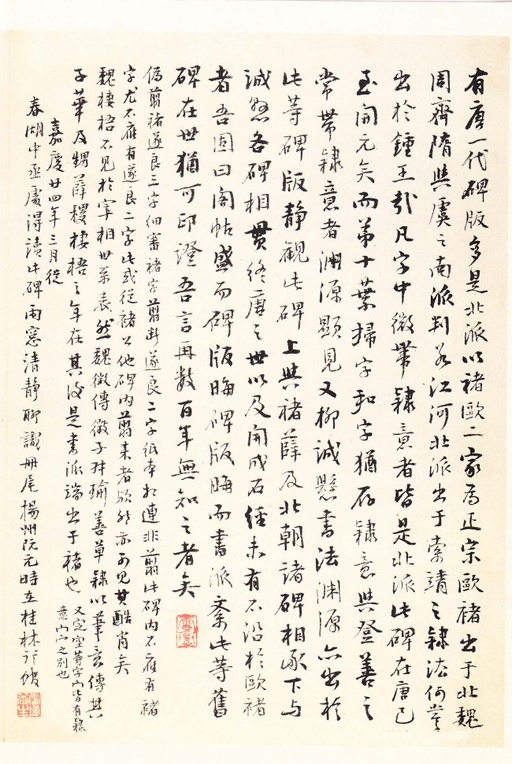 有唐一代碑版多是北派以褚歐二家為正宗歐褚出于北魏
周齊隋與虞之南派判若江河北派出于索靖之隸法何嘗
出於鍾王哉凡字中微帶隸意者皆是北派此碑在唐已
至開元矣而第十葉掃字和字猶存隸意與登善之
常帶隸意者淵源顯見又柳誠懸書法淵源亦出於
此等碑版靜觀此碑上與褚薛及北朝諸碑相承下与
誠懸各碑相貫終唐之世以及開成石經未有不沿於歐褚
者吾固曰閣帖盛而碑版晦碑版晦而書派紊此等舊
碑在世猶可印證吾言再數百年無知之者矣
偽翦褚遂良三字細審褚字翦斷遂良二字祇本相連非翦此碑内不應有褚
字尤不應有遂良二字此或從褚公他碑内翦來者歟然亦可見其酷肖矣
魏棲梧不見於宰相世系表然魏徵傳徵子叔瑜善草隸以筆意傳其
子華及甥薛稷棲梧之年在其後是書派端出于褚也
又定空等字宀皆有隸
意内宀之別也
嘉慶廿四年三月從
春湖中丞處得讀此碑雨窓清靜聊識冊尾揚州阮元時在桂林行館